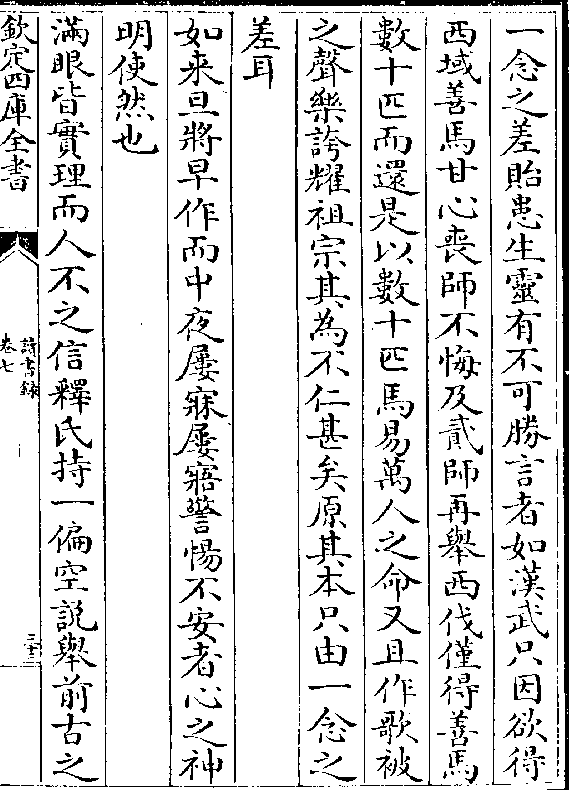 一念之差貽患生靈有不可勝言者如漢武只因欲得
西域善馬甘心喪師不悔及貳師再舉西伐僅得善馬
數十匹而還是以數十匹馬易萬人之命又且作歌被
之聲樂誇耀祖宗其為不仁甚矣原其本只由一念之
差耳
如来旦將早作而中夜屢寐屢寤警惕不安者心之神
明使然也
滿眼皆實理而人不之信釋氏持一偏空説舉前古之
欽定四庫全書
讀書録
卷七